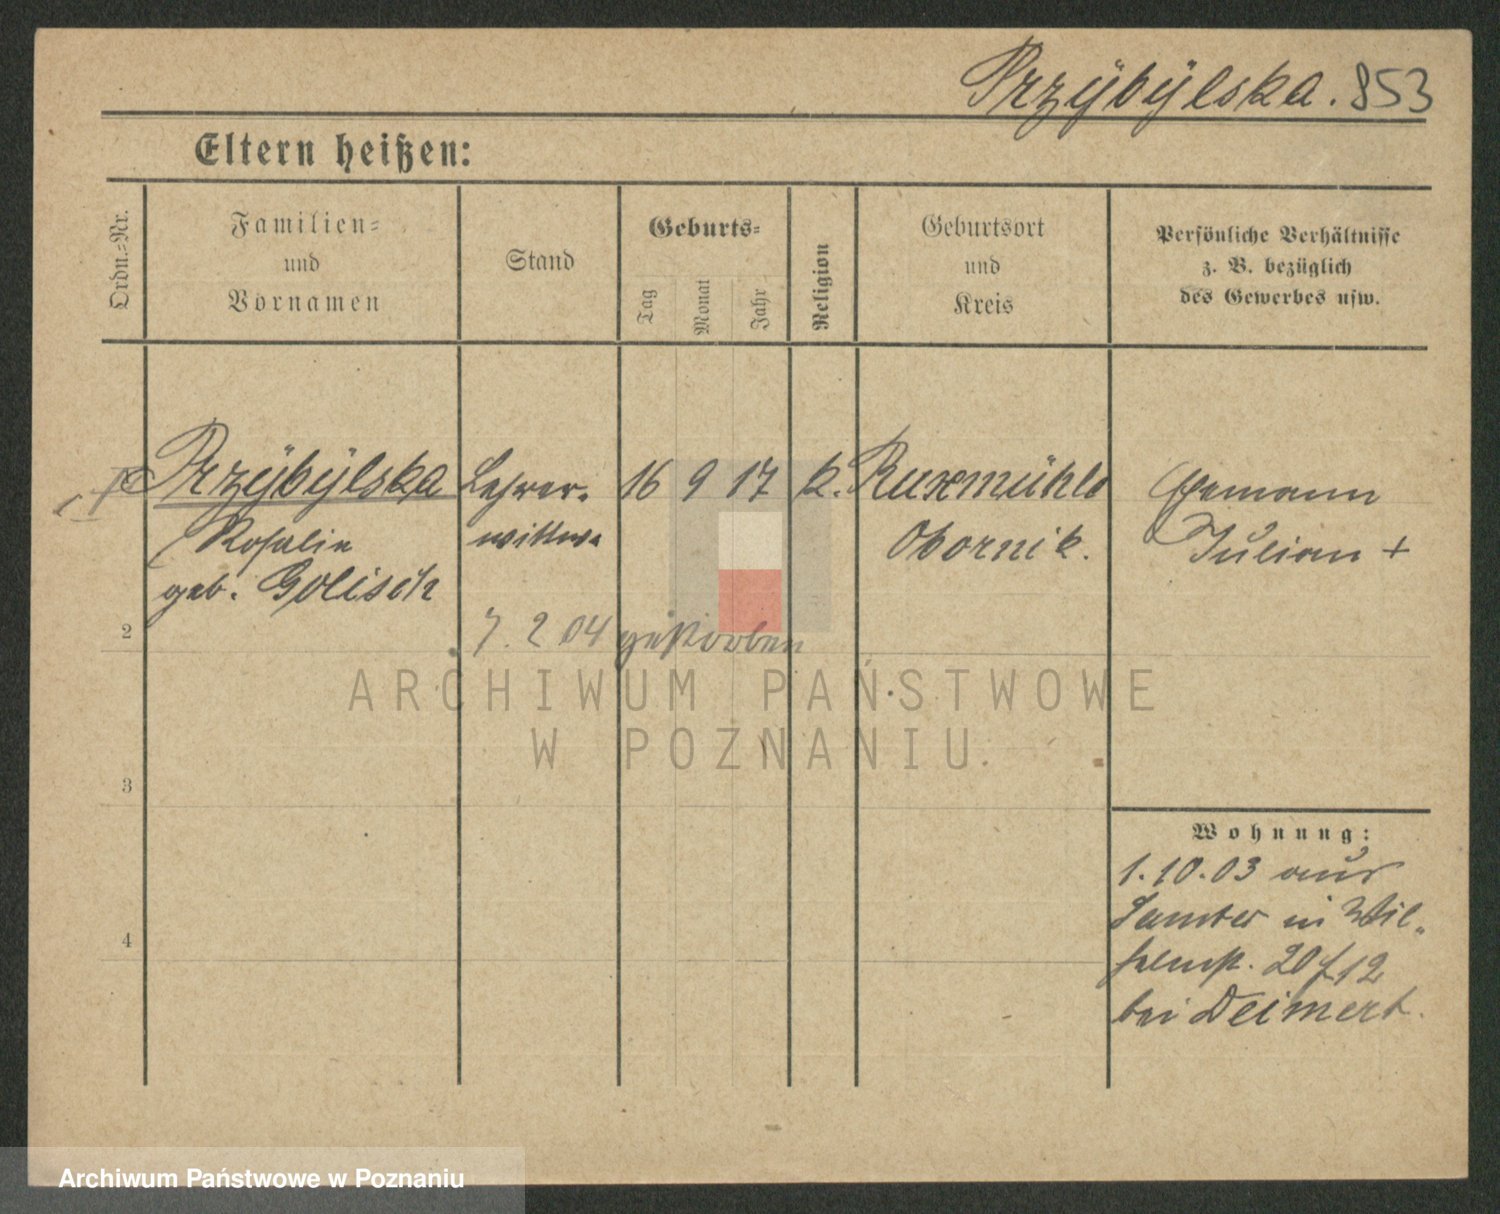 Przÿbÿlska. 853
Eltern heißen:
Ordn.-Nr.
Familien-
und
Vornamen
Stand
Geburts-
Tag
Monat
Jahr
Religion
Geburtsort
und
Kreis
Persönliche Verhältnisse
z. B. bezüglich
des Gewerbes usw.
Przÿbÿlska Lehrer- 16 9 17 k. Ruxmühle Ehemann
Rosalie wittwe Obornik. Julian +
geb. Golisch
2 7. 2 04 gestorben
ARCHIWUM PAŃSTWOWE
W POZNANIU
3
Wohnung:
1.10.03 aus
Samter in Wil-
helmst. 20 f 12
4
bei Deimert.
Archiwum Państwowe w Poznaniu